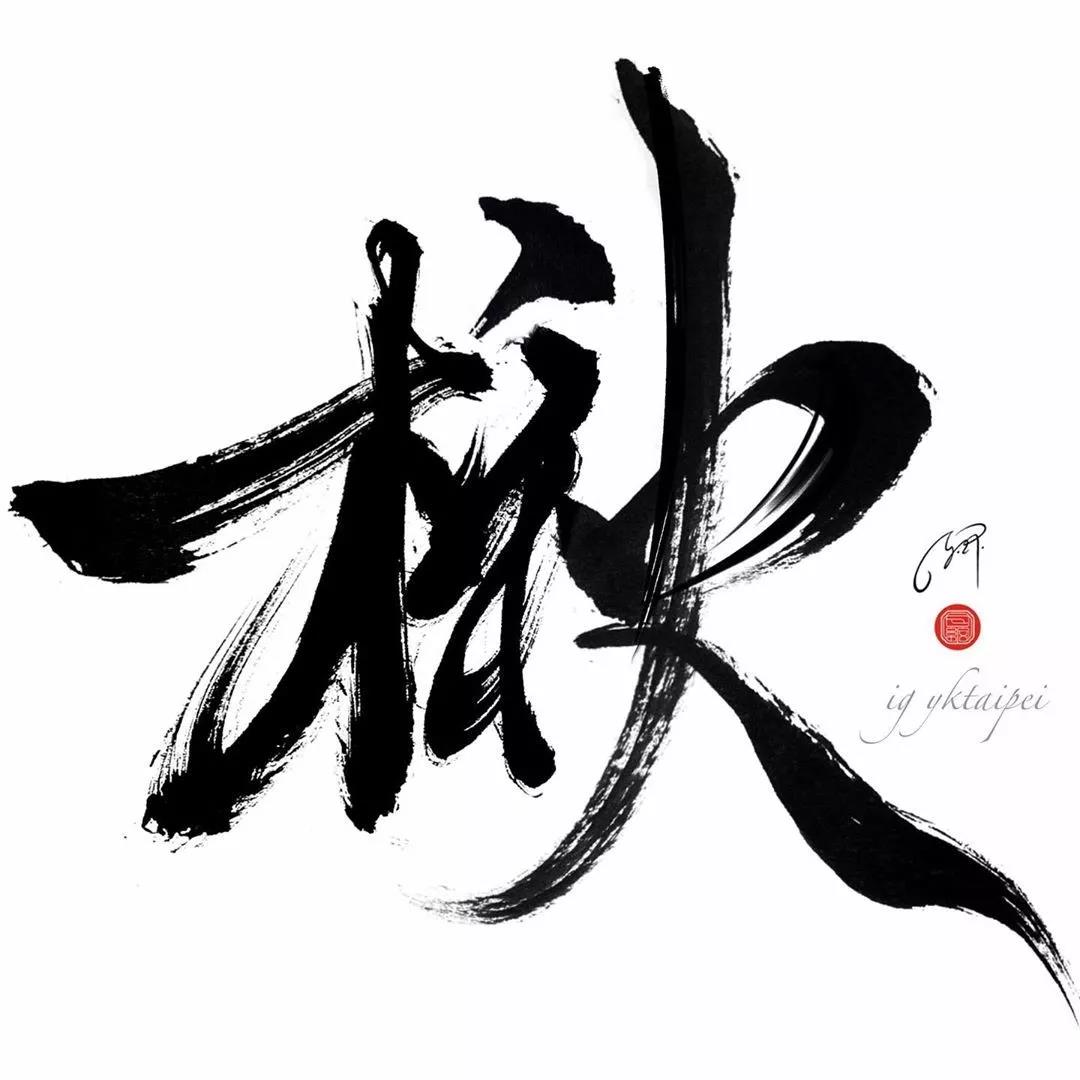 楸
ig yktaipei